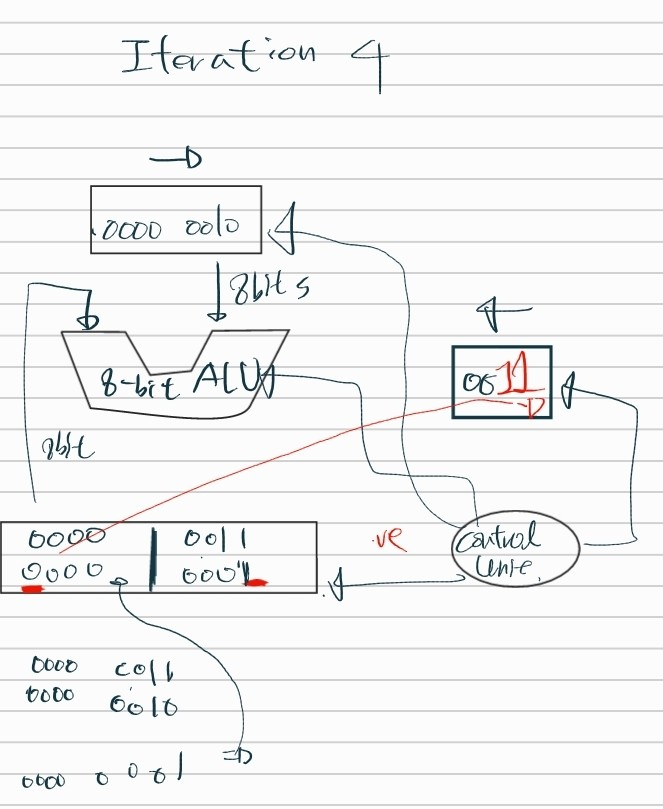 Iteration 4
0000 0010
8bits
8-bit ALU
0011
8bit
0000 0011
0000 0001
.ve
Control
Unite.
0000 0011
0000 0010
0000 0001